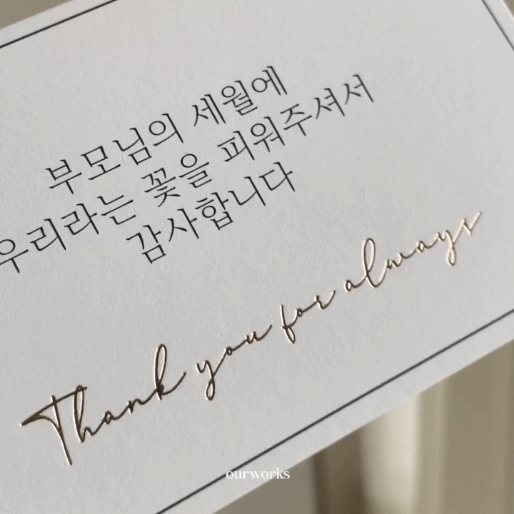 부모님의 세월에
우리라는 꽃을 피워주셔서
감사합니다
Thank you for always
ourworks